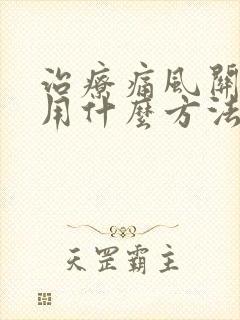 治療痛風關
用什麼方法
天罡霸主